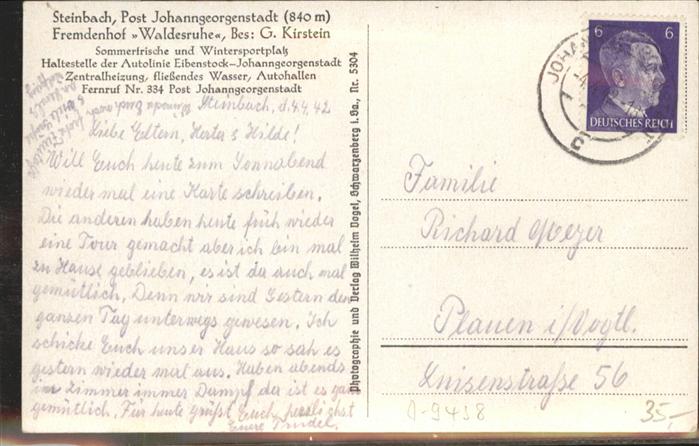 Steinbach, Post Johanngeorgenstadt (840 m)
Fremdenhof »Waldesruhe«, Bes: G. Kirstein
Sommerfrische und Wintersportplatz
Haltestelle der Autolinie Eibenstock—Johanngeorgenstadt
Zentralheizung, fließendes Wasser, Autohallen
Fernruf Nr. 334 Post Johanngeorgenstadt
Steinbach, d. 4.4.42
Liebe Eltern, Herta & Hilde!
Will Euch heute zum Sonnabend
wieder mal eine Karte schreiben.
Die anderen haben heute früh wieder
eine Tour gemacht aber ich bin mal
zu Hause geblieben, es ist da auch mal
gemütlich. Denn wir sind Gestern den
ganzen Tag unterwegs gewesen. Ich
schicke Euch unser Haus so sah es
gestern wieder mal aus. Haben abends
im Zimmer immer Dampf da ist es ganz
gemütlich. Für heute grüßt Euch herzlichst
Eure Trudel.
Photographie und Verlag Wilhelm Vogel, Schwarzenberg i. Sa., Nr. 5304
6 6
DEUTSCHES REICH
JOHAN
Familie
Richard Meyer
Plauen i/Vogtl.
Luisenstraße 56
A-9438
35,-